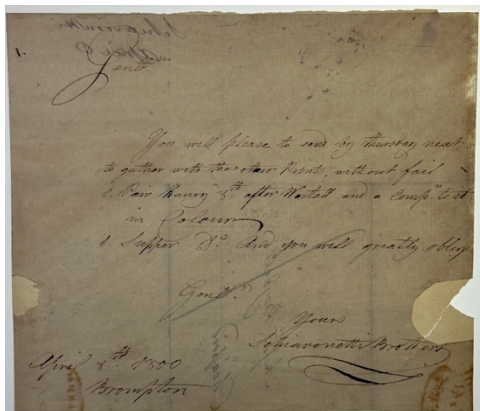 1.
Gentn.
You will please to send by thursday next
to gather with the other Prints, without fail
6. Pair after Westall and a Compn. to it
in Colours
6. Supper Do. And you will greatly oblige
Gentn.
Yours
Schiavonetti Brothers
April 8th 1800
Brompton